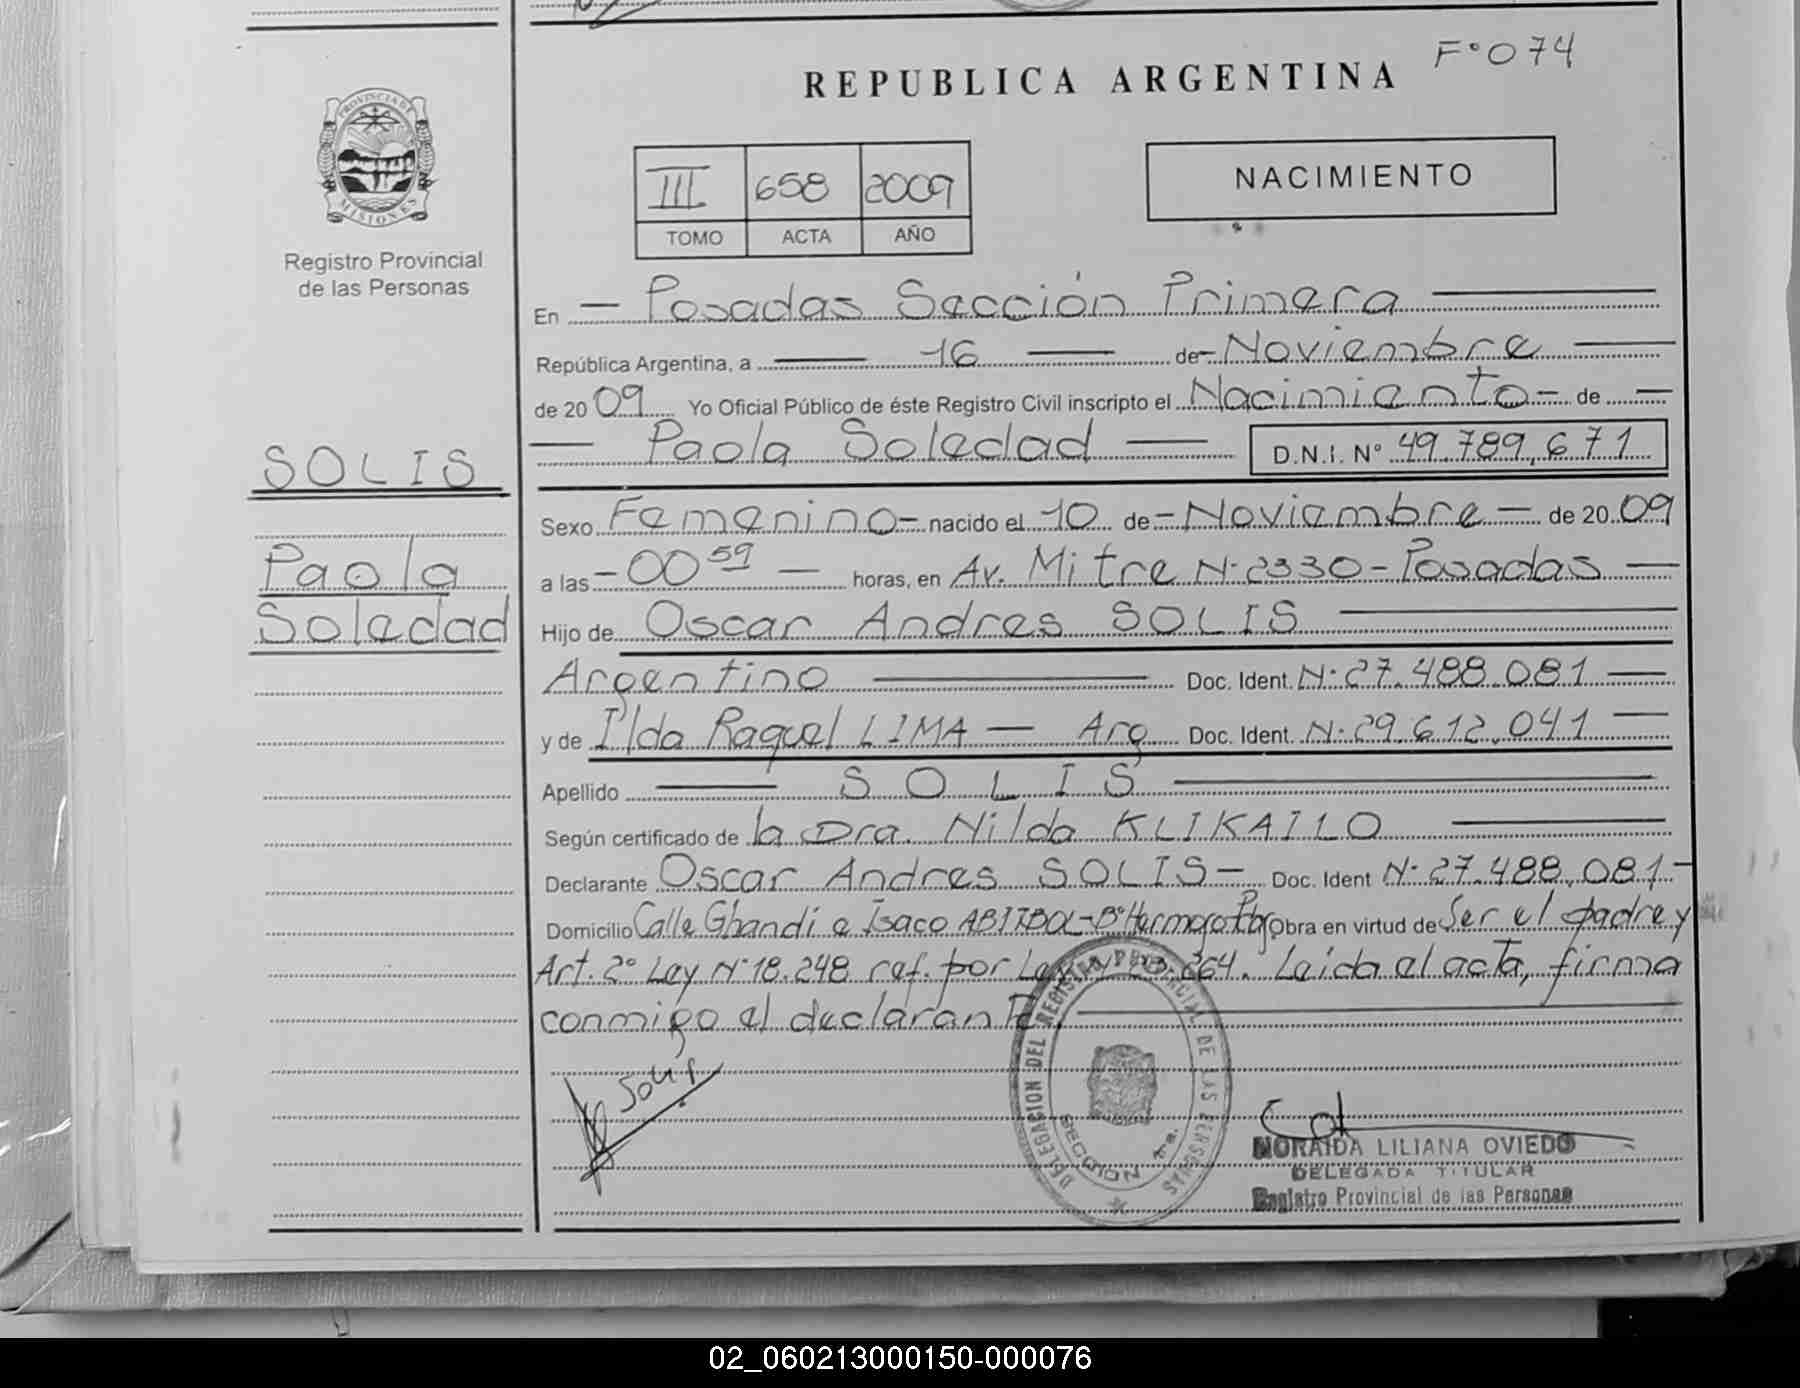 F°074
REPUBLICA ARGENTINA
PROVINCIA DE
MISIONES
Registro Provincial
de las Personas
III 658 2009
TOMO ACTA AÑO
NACIMIENTO
En - Posadas Sección Primera
República Argentina, a 16 de - Noviembre
de 20 09 Yo Oficial Público de éste Registro Civil inscripto el Nacimiento - de
Paola Soledad D.N.I. Nº 49.789.671
SOLIS
Paola
Soledad
Sexo Femenino - nacido el 10 de - Noviembre - de 20 09
a las - 00 59 - horas, en Av. Mitre N° 2330 - Posadas
Hijo de Oscar Andres SOLIS
Argentino Doc. Ident. N° 27.488.081
y de Ilda Raquel LIMA - Arg Doc. Ident. N° 29.612.041
Apellido SOLIS
Según certificado de la Dra. Nilda KLIKAILO
Declarante Oscar Andres SOLIS - Doc. Ident N° 27.488.081 -
Domicilio Calle Ghandi e Isaco ABITBOL - B° Hermoso Obra en virtud de Ser el padre y
Art. 2° Ley N° 18.248 ref. por Ley 264. Leida el acta, firma
conmigo el declarante.
Solis
DELEGACION DEL REGISTRO PROVINCIAL DE LAS PERSONAS
SECCION 1ra.
NORAIDA LILIANA OVIEDO
DELEGADA TITULAR
Registro Provincial de las Personas
02_060213000150-000076